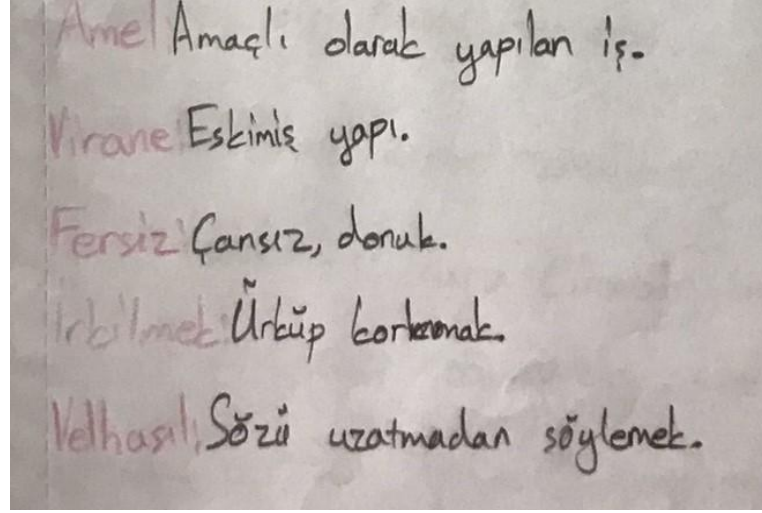 Amel: Amaçlı olarak yapılan iş.
Virane: Eskimiş yapı.
Fersiz: Çansız, donuk.
İrkilmek: Ürküp korkmak.
Velhasıl: Sözü uzatmadan söylemek.